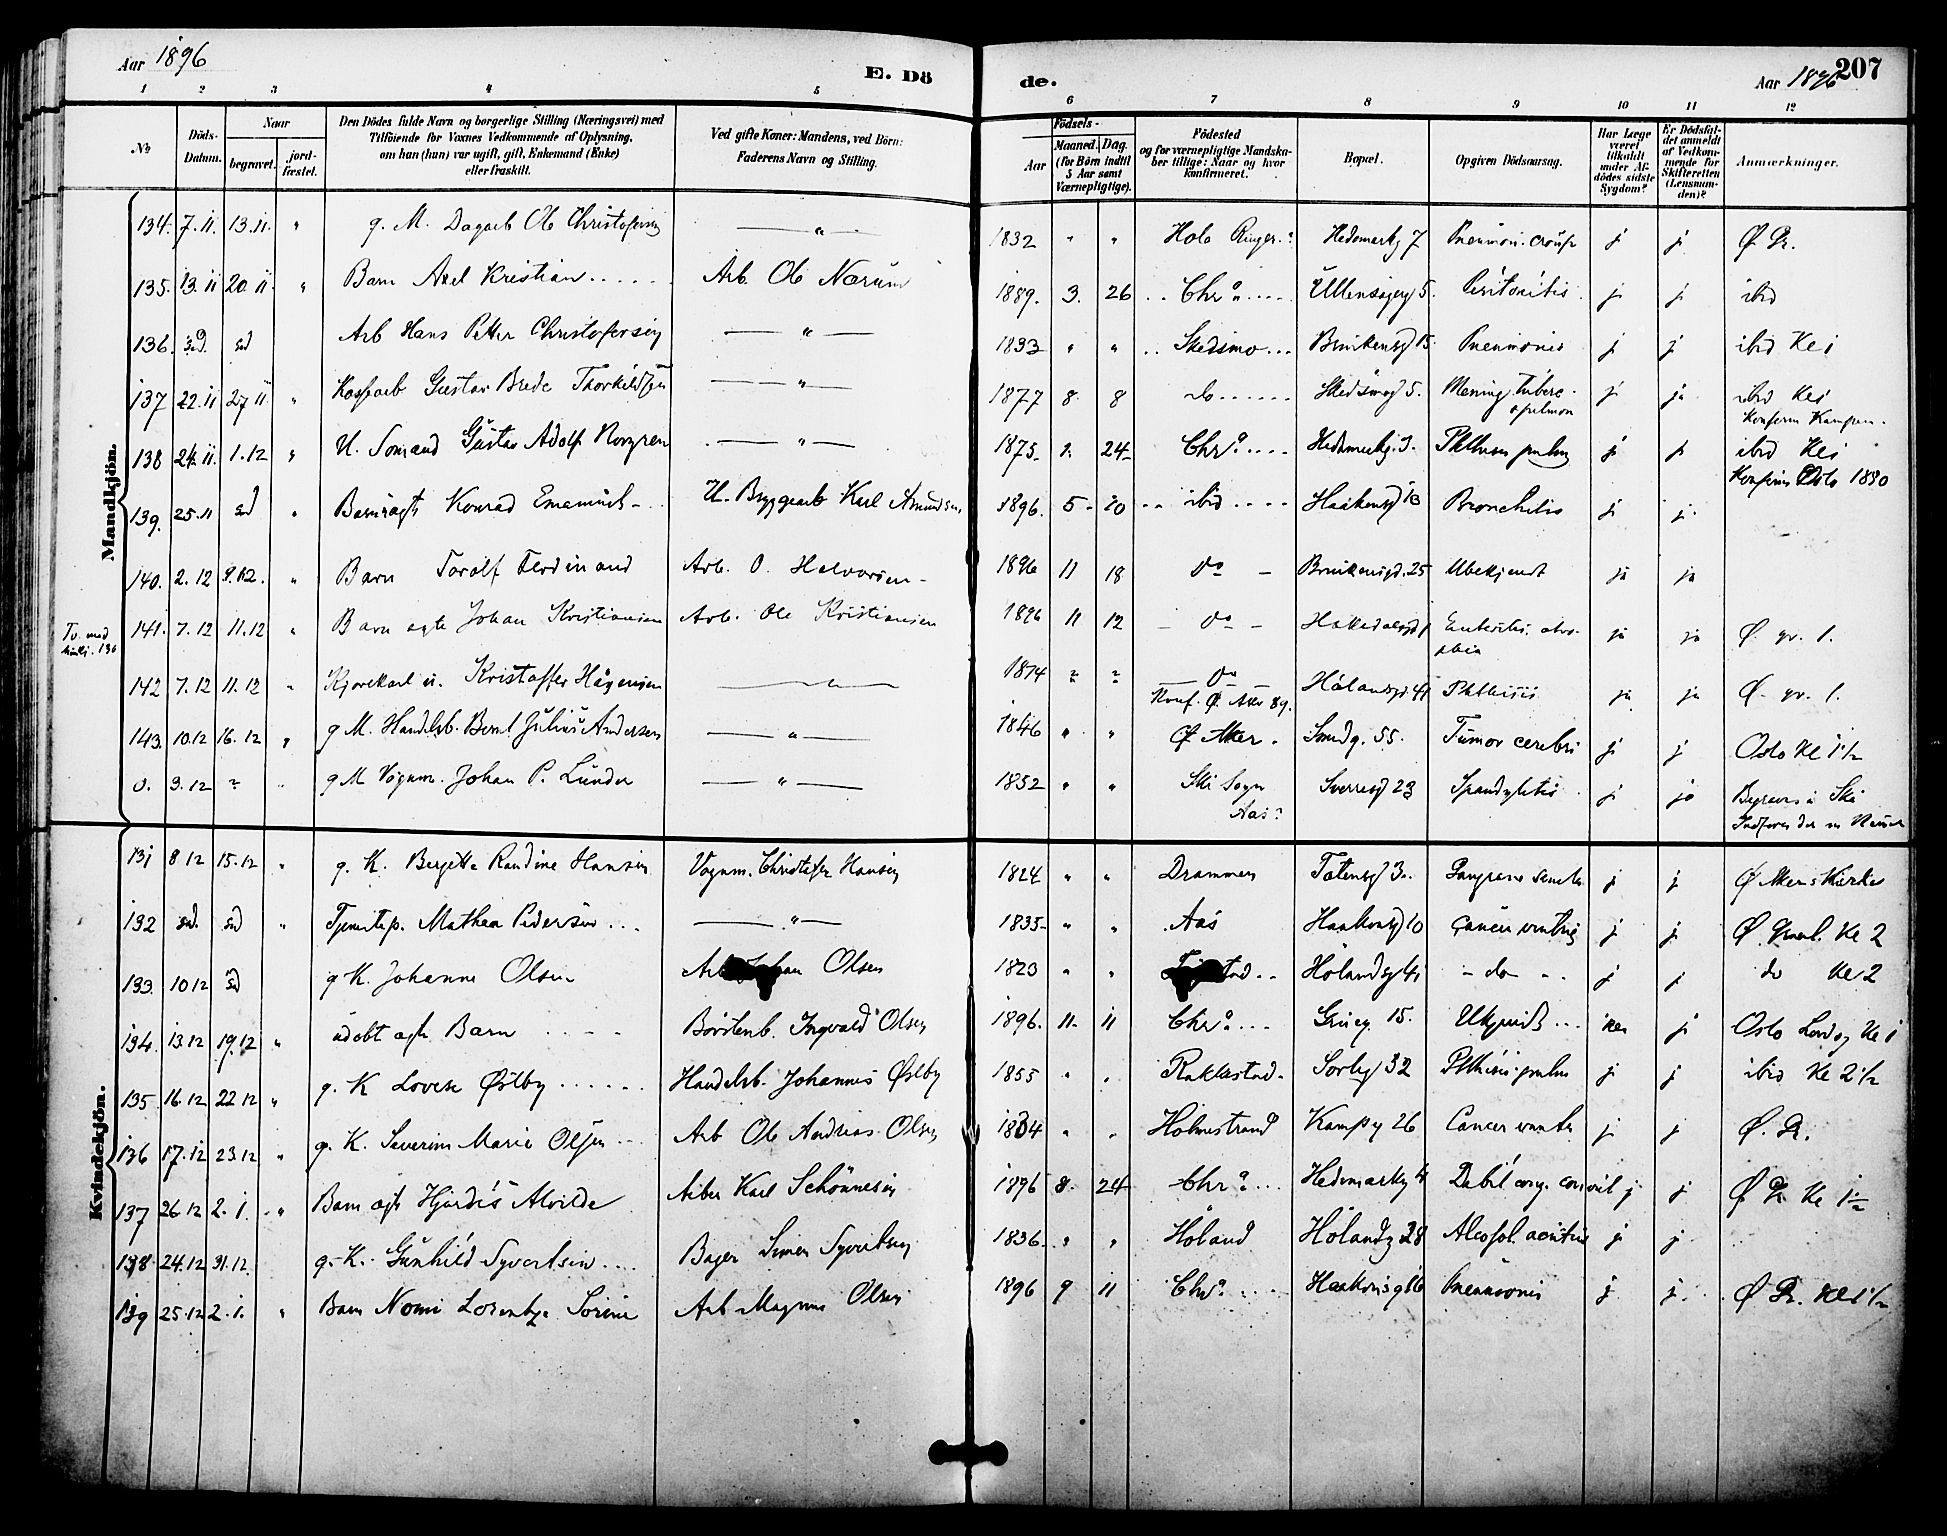 Aar 1896
E. Dö
de.
Aar 1896
207
1 2 3 4 5 6 7 8 9 10 11 12
No
Döds-Datum.
Naar
begravet.
jord-fæstet.
Den Dödes fulde Navn og borgerlige Stilling (Næringsvei) med
Tilföiende for Voxnes Vedkommende af Oplysning,
om han (hun) var ugift, gift, Enkemand (Enke)
eller fraskilt.
Ved gifte Koner: Mandens, ved Börn:
Faderens Navn og Stilling.
Födsels-
Aar
Maaned. Dag.
(for Börn indtil
5 Aar samt
Værnepligtige).
Födested
og for værnepligtige Mandska-
ber tillige: Naar og hvor
konfirmeret.
Bopæl.
Opgiven Dödsaarsag.
Har Læge
været
tilkaldt
under Af-
dödes sidste
Sygdom?
Er Dödsfal-
det anmeldt
af Vedkom-
mende for
Skifteretten
(Lensman-
den)?
Anmærkninger.
Mandkjön.
134. 7.11. 13.11. " g. M. Dagarb Ole Christofersen — " — 1832 " " Hole Ringer.? Hedemarkg 7 Pneumoni. croup j j Ø. Gr.
135. 13.11 20.11. " Barn Axel Kristian Arb. Ole Nærum 1889. 3. 26 Chr.a Ullensagerg 5. Peritonitis j j ibid
136. sd. sd Arb Hans Petter Christofersen — " — 1833 " " Skedsmo Brinkensgd 15. Pneumonia j j ibid Kl 1
137 22.11 27.11. " Gustav Brede Thorkildsen — " — 1877 8. 8 do Skedsmog 5. Mening. tuberc. pulmon j ja ibid Kl 1
Konfirm Kampen.
138 24.11. 1.12 " U. Sømand Gustav Adolf Norgren — " — 1875. 1. 24 Chr.a Hedemarkg. 3. Phthisis pulm j j ibid Kl 1
Konfirm Oslo 1890
139. 25.11 sd " Barn ægte Konrad Emanuel U. Bryggearb Karl Amundsen 1896. 5 10 ibid Haakonsg 13 Bronchitis j j.
140. 2.12 9.12. " Barn Toralf Ferdinand Arb. O. Halvorsen 1896 11 18 do Brinkensgd. 25 Ubekjendt ja ja
Tv. med
141. 7.12 11.12 " Barn ægte Johan Kristiansen Arb. Ole Kristiansen 1896 11 12 do Hakedalsgd 1 Enteritis, atro-
phia ja ja Ø. gr. 1.
142 7.12 11.12 " Kjørekarl u. Kristoffer Hågensen — " — 1874 ? ? do
Konf. Ø. Aker 89. Hølandsgd. 41 Phthisis ja ja Ø. gr. 1.
143. 10.12 16.12 " g M. Handelsb. Bernt Julius Andersen — " — 1846 " " Ø Aker. Smedg. 55. Tumor cerebri j j Oslo Kl 1 1/2
0. 3.12 ? " g M Vognm. Johan P. Lunder — " — 1852 " " Ski Sogn
Aas? Sverresgd 23 Spondylitis j ja Begraves i Ski
Kvindekjön.
131 8 12 15.12 " g. K. Bergitte Randine Hansen Vognm. Christoffer Hansen 1824 " " Drammen Totensgd 3. Gangræna senilis j j Ø Akers Kirke
132 sd. sd " Tjenstep. Mathea Pedersen — " — 1835 " " Aas Haakonsgd 10 Cancer ventric j j. Ø. Kl 2
133. 10 12 sd g K. Johanne Olsen Arb Johan Olsen 1823 " " Hølandsg 41 do j j do Kl 2
134. 13 12 19.12 " udøbt ægte Barn Børstenb. Ingvald Olsen 1896. 11. 11 Chr.a Grueg. 15. Ukjendt nei j Oslo Lørdag Kl 1
135. 16.12 22 12 " g. K Lovise Østby Handelsb. Johannes Østby 1855 " " Rakkestad Sorlig 32 Phthisis pulm j j ibid Kl 2 1/2
136 17.12 23.12 " g. K. Severine Marie Olsen Arb Ole Andreas Olsen 1834 " " Holmestrand Kampg 26 Cancer ventr j j Ø. Gr.
137 26.12 2.1. " Barn ægte Hjørdis Alvilde Arbei Karl Schønnesen 1896 8. 24 Chr.a Hedemarkg 4 Debil cong. convul j j Ø Gr Kl 1 1/2
138 24.12 31.12. g. K. Gunhild Syvertsen Bager Simen Syvertsen 1836. " " Høland Hølandg 28 Alcohol. acutus j j
139 25.12 2.1. " Barn Nomi Lorentze Sørine Arb Magnus Olsen 1896 9 11 Chr.a Haakonsg 16 Pneumonia j j. Ø Gr. Kl 1 1/2